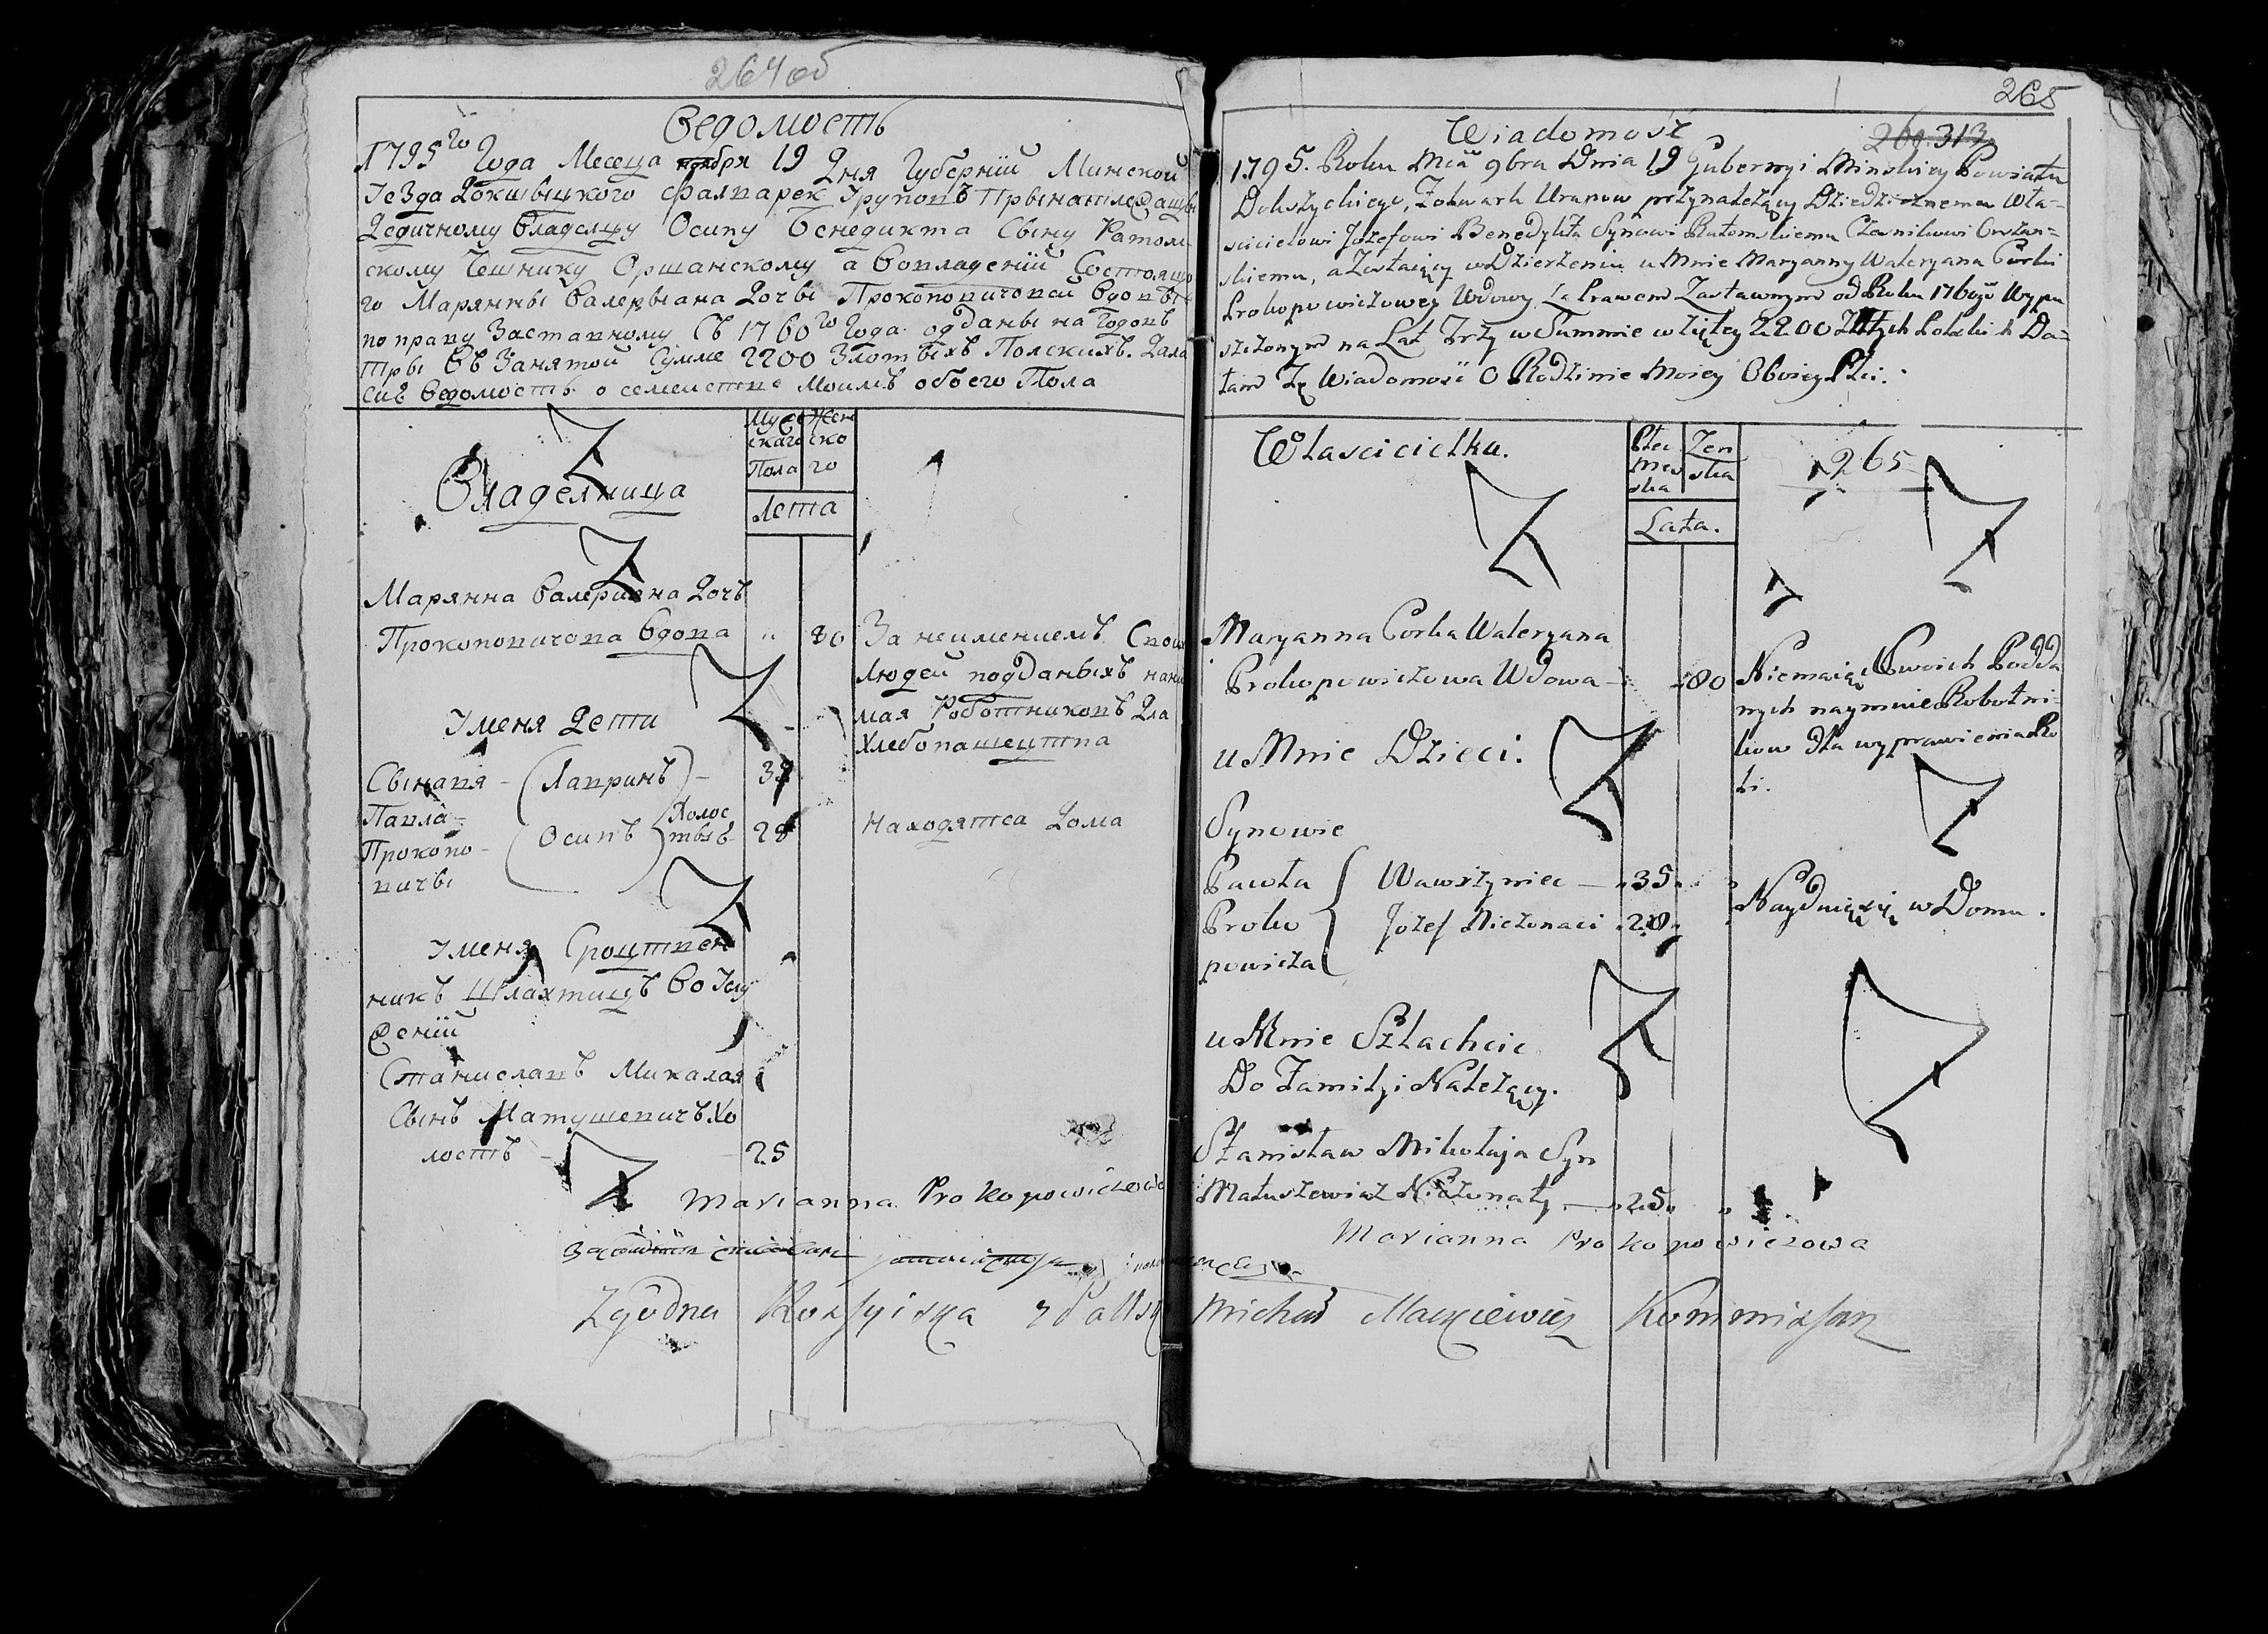 264 об
Ведомость
1795го Года Месеца ноября 19 Дня Губерніи Минской
Уезда Докшыцкого фалварек Уруповъ Прынатлежащы
Дедичному Владелцу Осипу Бенедикта Сыну Ратом
скому Чешнику Оршанскому а Вовладеніи Состоящо
го Марянны Валерыана Дочвы Прокоповичовой Вдовы
по праву Заставному Съ 1760го Года одданы на Годовъ
тры Въ Занятой Сумме 2200 Злотыхъ Полскихъ. Дала
сиѣ Ведомость о семействе моимъ обоего Пола
Владелница
Муже Жен
скаго ско
Пола го
Лета
Марянна Валериана Дочъ
Прокоповичова Вдова " 80
За неимениемъ Своих
Людей подданыхъ нани
мая Роботниковъ Дла
Хлебопашецтва
Уменя Дети
Сынавя - Лавринъ -
Павла - Холос
Прокопо - Осипъ тыѣ 28
вичы
Находятса Дома
Уменя
никъ Шляхтицъ Во Услу
женіи
Станиславъ Микалая
Сынъ Матушевичъ Хо
лостъ - 25
Marianna Prokopowiczowa
Zgodna Rossyiska z Polsk
265
313
Wiadomosc
1795. Roku Mca 9bra Dnia 19 Gubernyi Minskiey Powiatu
Dokszyckiego, Folwark Urapow przynalezący Dziedzicznemu Wła=
scicielowi Jozefowi Benedykta Synowi Ratomskiemu Czesnikowi Orszan=
skiemu, a Zostaiący w Dzierzeniu u Mnie Maryanny Waleryana Corki
Prokopowiczowey Wdowy Za Prawem Zastawnym od Roku 1760go Wypu
szczonym na Lat Trzy w Summie wziętey 2200 Złłtych Polskich Da=
łam Tę Wiadomosc O Rodzinie Moiey Oboiey Płci.
Własciciełka.
Płec Zen
Mes ska
ska
Lata.
265
Maryanna Corka Waleryana
Prokopowiczowa Wdowa - 80
Niemaiąc Swoich Podda
nych naymuie Robotni-
kow dla wyprawienia Ro
li.
u Mnie Dzieci.
Synowie
Pawła Wawrzyniec — „35„
Proko Jozef Niezonaci „28„
powicza
Nayduią się w Domu.
u Mnie Szlachcic
Do Familyi Nalezący.
Stanisław Mikołaja Syn
Matuszewicz Niezonaty — „25„
Marianna Prokopowiczowa
Michał Mackiewicz Kommissarz